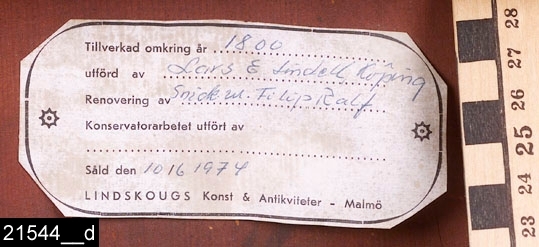 Tillverkad omkring år 1800
utförd av Lars E Lindell Köping
Renovering av Snickm. Filip Ralf
Konservatorarbetet utfört av
Såld den 10 16 1974
LINDSKOUGS Konst & Antikviteter - Malmö
21544__d
23 24 25 26 27 28